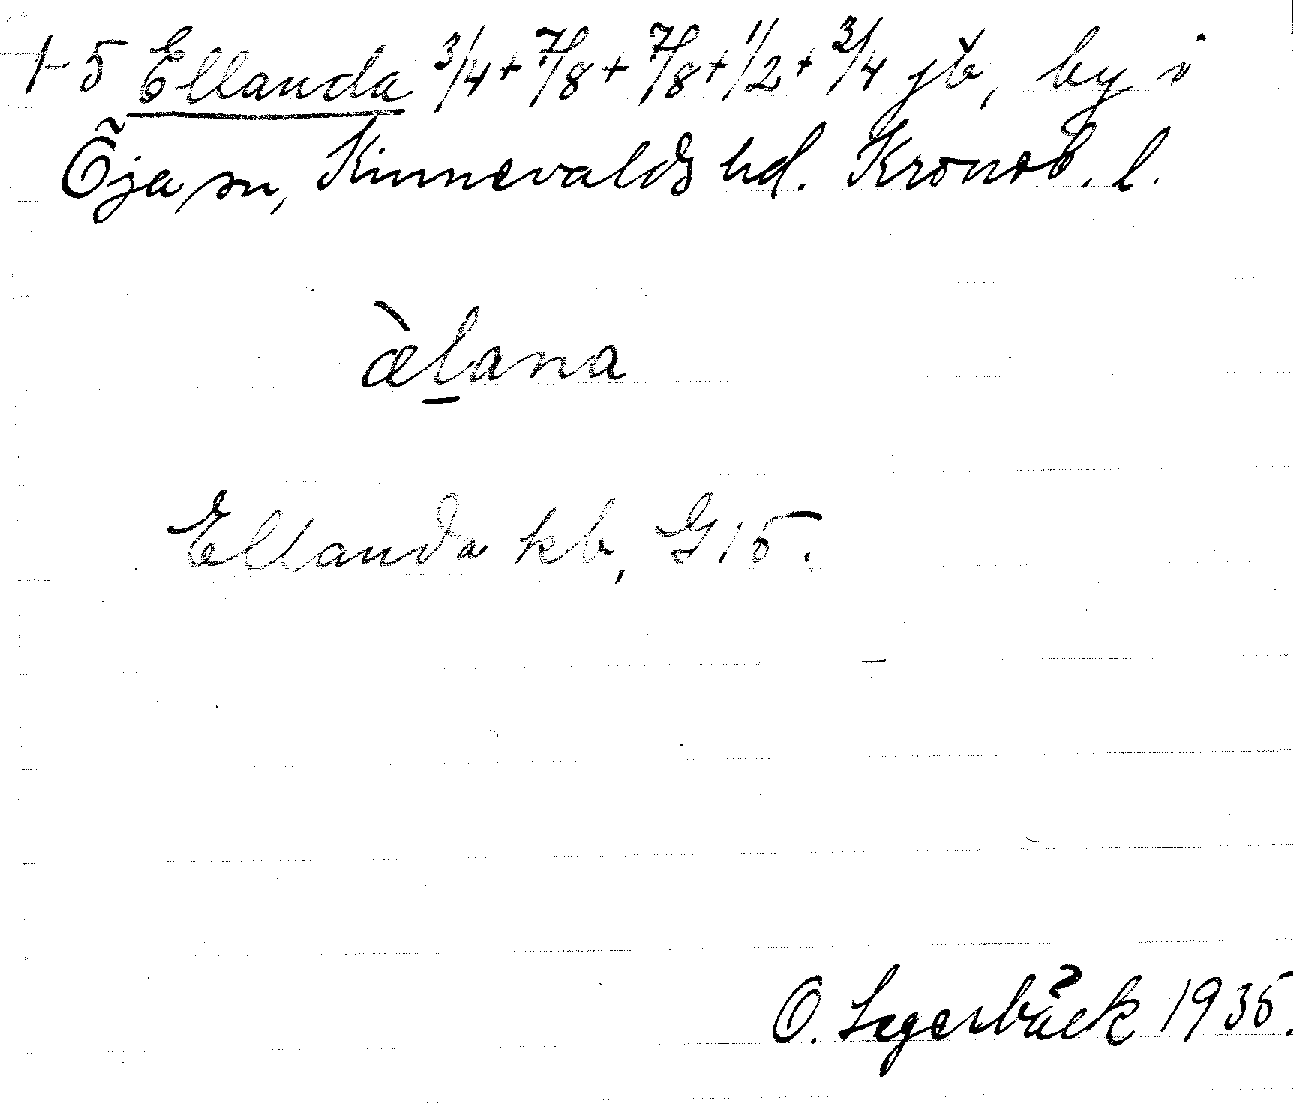 1-5 Ellanda 3/4+7/8+7/8+1/2+3/4 jb, by i
Öja sn, Kinnevalds hd. Kronob. l.
æ̀l̲ana
Ellanda kb, G 15.
O. Lagerbäck 1935.